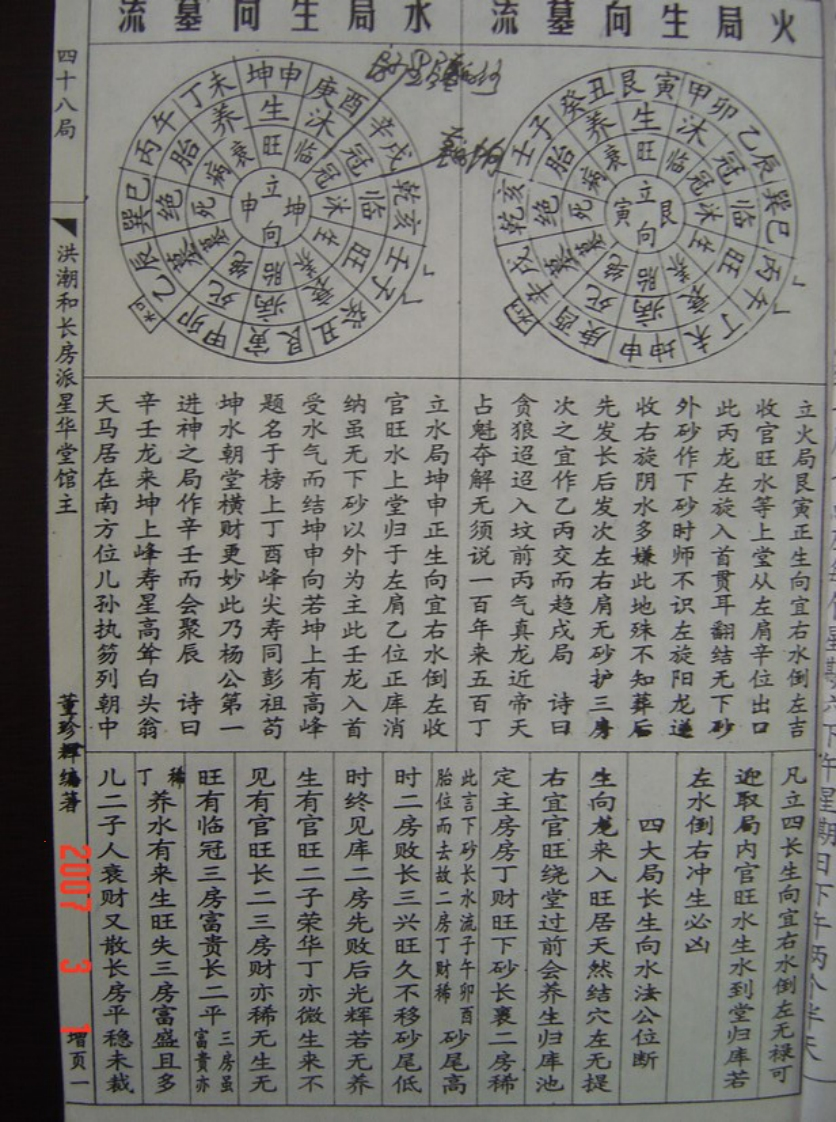 火局生向墓流
水局生向墓流
四十八局
洪潮和长房派星华堂馆主
董珍辉编著
增页一
癸丑艮寅甲卯乙辰巽巳丙午丁未坤申庚酉辛戌乾亥壬子
养生沐冠临旺衰病死墓绝胎
衰旺临冠沐生养胎绝墓死病
立艮向寅
丁未坤申庚酉辛戌乾亥壬子癸丑艮寅甲卯乙辰巽巳丙午
养生沐冠临旺衰病死墓绝胎
衰旺临冠沐生养胎绝墓死病
立坤向申
立火局艮寅正生向宜右水倒左吉
收官旺水等上堂从左肩辛位出口
此丙龙左旋入首贯耳翻结无下砂
外砂作下砂时师不识左旋阳龙逆
收右旋阴水多嫌此地殊不知葬后
先发长后发次左右肩无砂护三房
次之宜作乙丙交而趋戌局 诗曰
贪狼迢迢入坟前丙气真龙近帝天
占魁夺解无须说一百年来五百丁
立水局坤申正生向宜右水倒左收
官旺水上堂归于左肩乙位正库消
纳虽无下砂以外为主此壬龙入首
受水气而结坤申向若坤上有高峰
题名于榜上丁酉峰尖寿同彭祖苟
坤水朝堂横财更妙此乃杨公第一
进神之局作辛壬而会聚辰 诗曰
辛壬龙来坤上峰寿星高耸白头翁
天马居在南方位儿孙执笏列朝中
凡立四长生向宜右水倒左无禄可
迎取局内官旺水生水到堂归库若
左水倒右冲生必凶
四大局长生向水法公位断
生向龙来入旺居天然结穴左无提
右宜官旺绕堂过前会养生归库池
定主房房丁财旺下砂长裹二房稀
此言下砂长水流子午卯酉
胎位而去故二房丁财稀
砂尾高
时二房败长三兴旺久不移砂尾低
时终见库二房先败后光辉若无养
生有官旺二子荣华丁亦微生来不
见有官旺长二三房财亦稀无生无
旺有临冠三房富贵长二平
三房虽
富贵亦
稀
丁
养水有来生旺失三房富盛且多
儿二子人衰财又散长房平稳未裁
2007 3 1